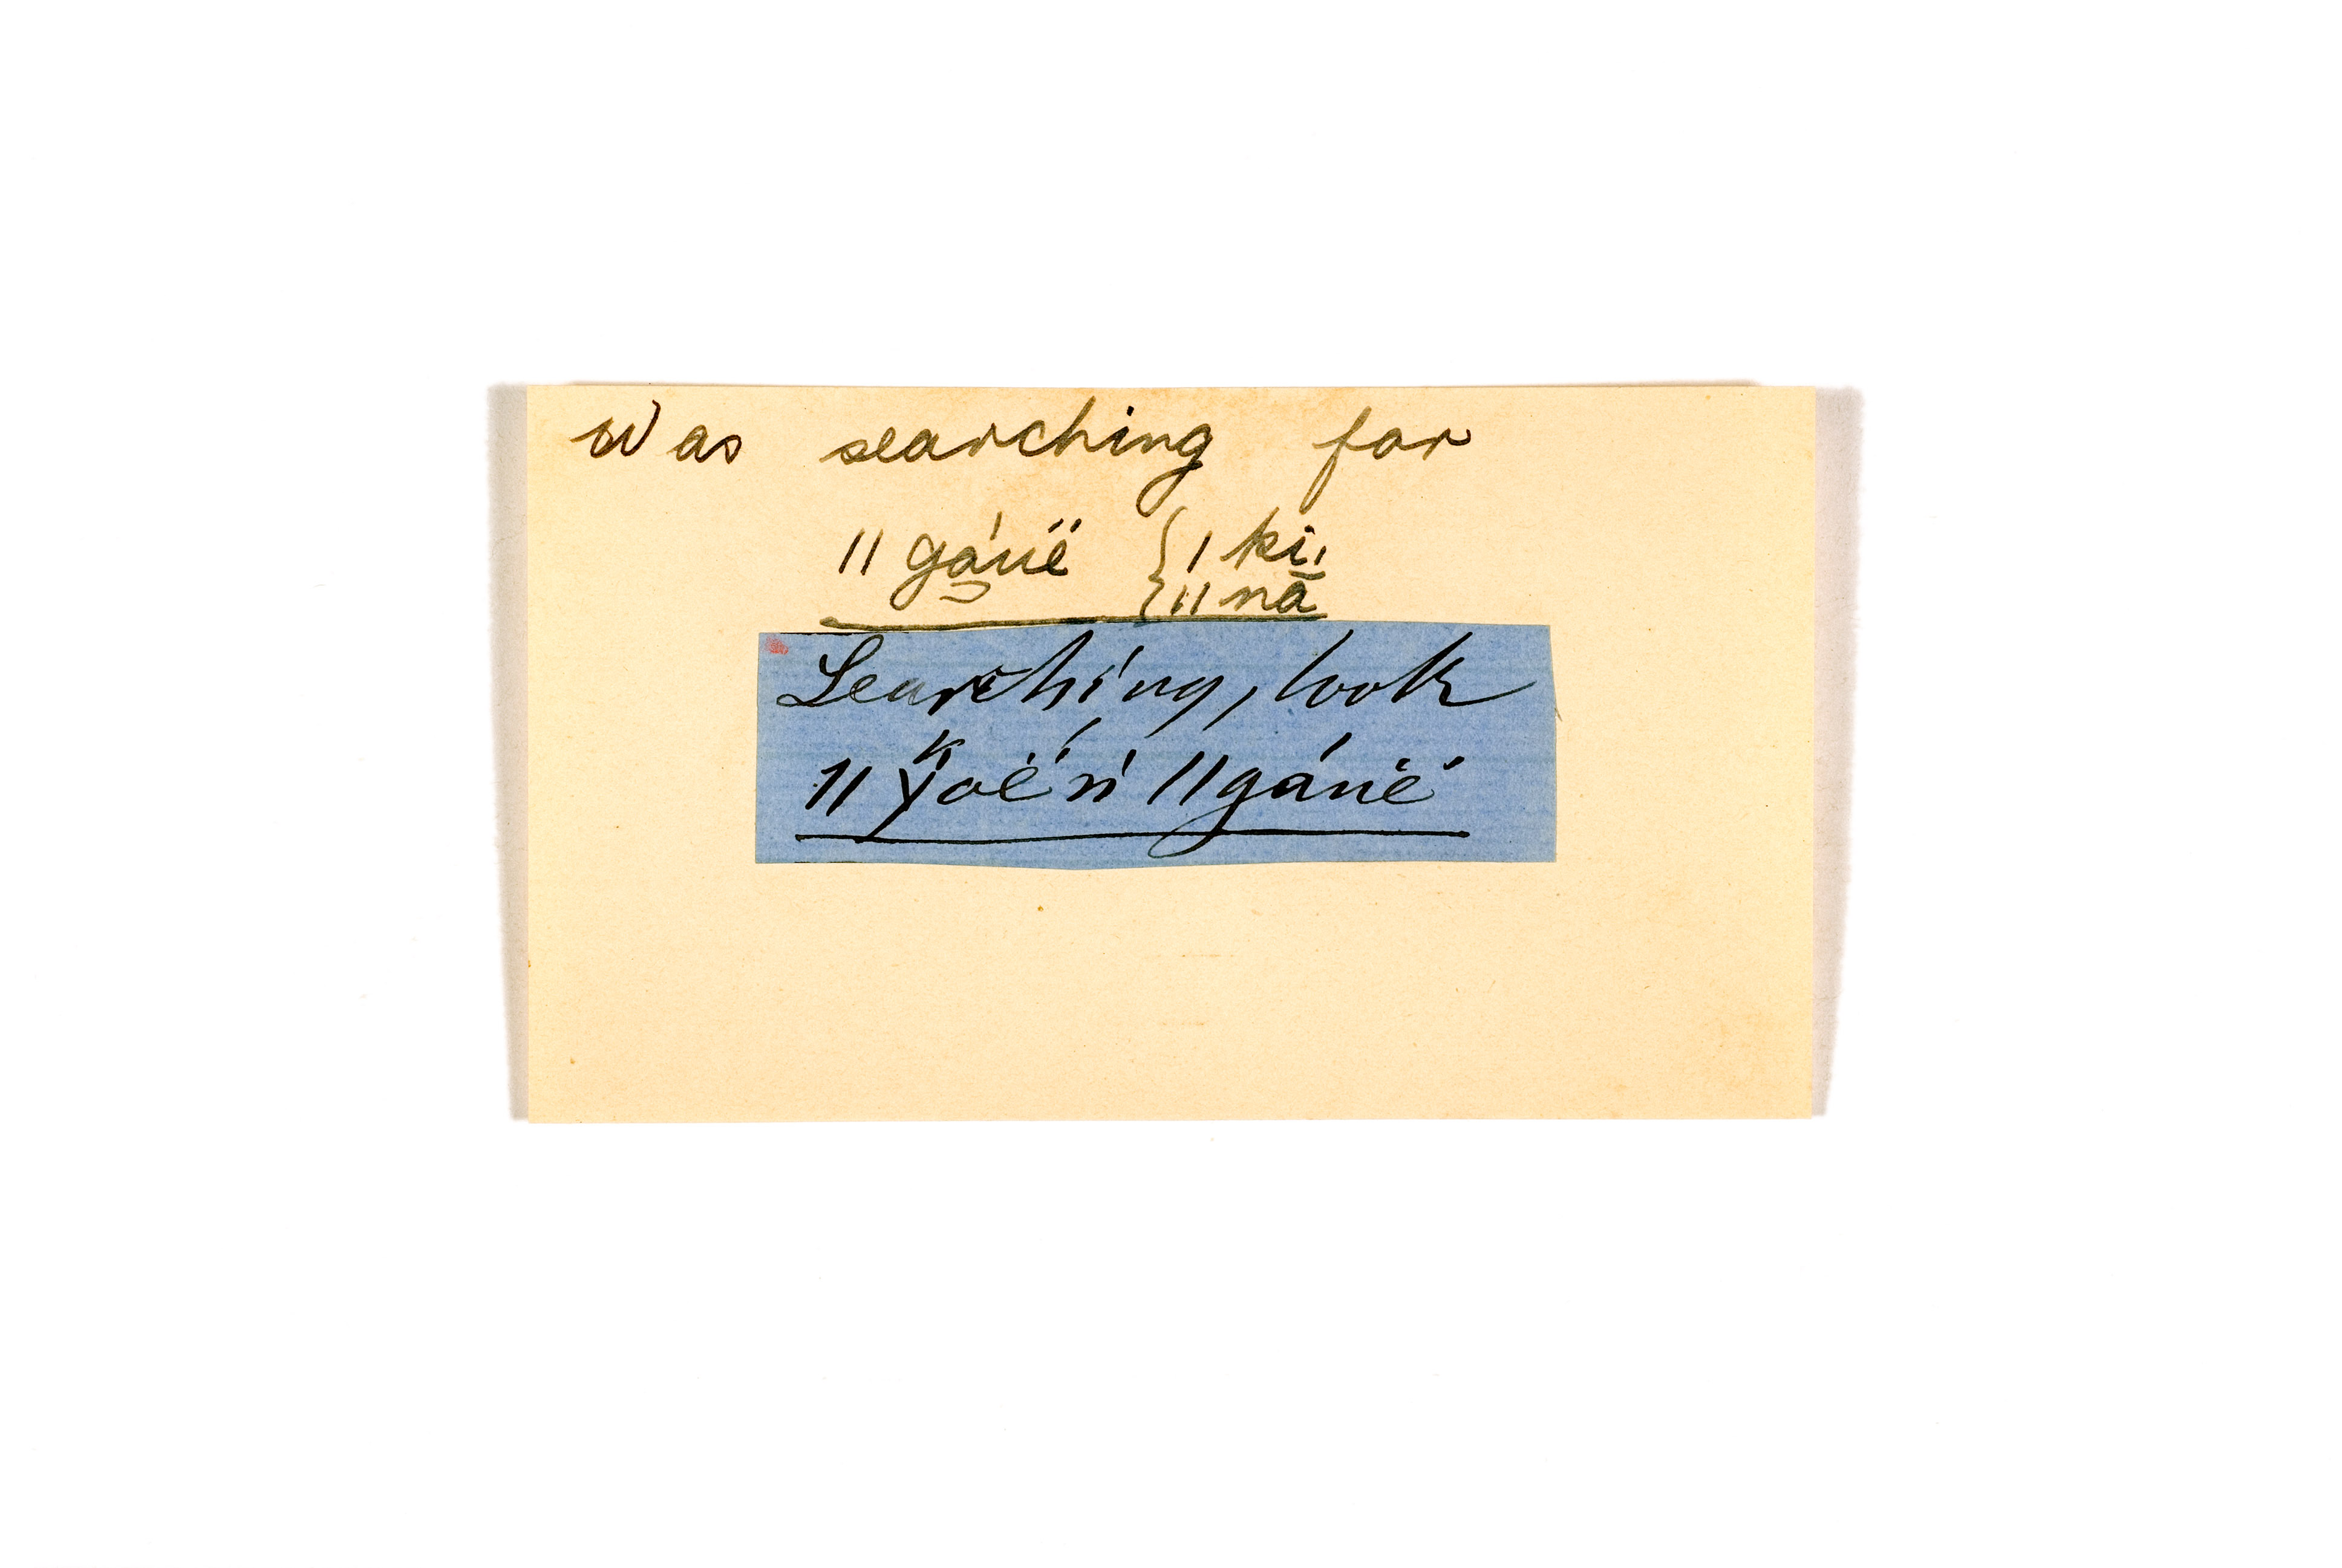 Was searching for
ǁ gáuë { ǀ ki
{ ǁ nā
Searching, look
ǁgáuë